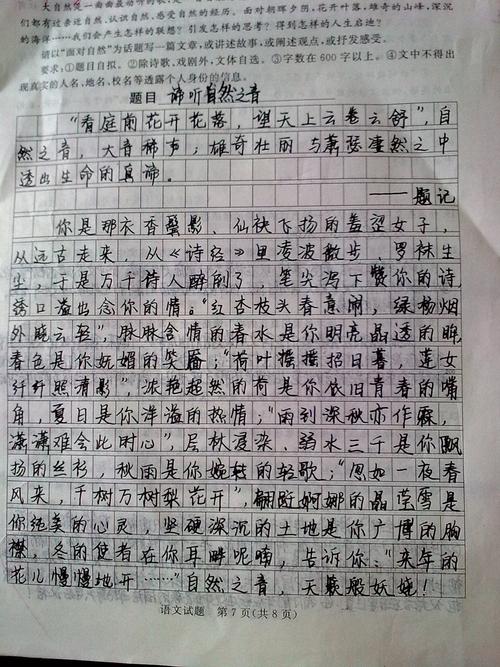 大自然是一曲曲最动听的歌，
们都有过亲近自然、认识自然、感受自然的经历。面对朝晖夕阴、花开叶落、雄奇的山峰、深沉
的海洋……我们会产生怎样的联想？引发怎样的思考？得到怎样的人生启迪？
请以“面对自然”为话题写一篇文章，或讲述故事，或阐述观点，或抒发感受。
要求：①题目自拟。②除诗歌、戏剧外，文体自选。③字数在600字以上。④文中不得出
现真实的人名、地名、校名等透露个人身份的信息。
题目 谛听自然之音
“看庭前花开花落，望天上云卷云舒”，自
然之音，大音稀声；雄奇壮丽与萧瑟凄然之中
透出生命的真谛。
——题记
你是那衣香鬓影、仙袂飞扬的羞涩女子，
从远古走来，从《诗经》里凌波微步，罗袜生
尘，于是万千诗人醉倒了，笔尖泻下赞你的诗，
绣口溢出念你的情。“红杏枝头春意闹，绿杨烟
外晓云轻”，脉脉含情的春水是你明亮晶透的眸，
春色是你妩媚的笑靥；“荷叶摇摇招日暮，莲女
纤纤照清影”，浓艳超然的荷是你依旧青春的嘴
角，夏日是你洋溢的热情；“雨到深秋亦作霖，
潇潇难会此时心”，层林浸染、弱水三千是你飘
扬的丝衫，秋雨是你婉转的轻歌；“忽如一夜春
风来，千树万树梨花开”，翩跹婀娜的晶莹雪是
你绝美的心灵，坚硬深沉的土地是你广博的胸
襟，冬的使者在你耳畔呢喃，告诉你：“来年的
花儿慢慢地开……”自然之音，天籁般妖娆！
语文试题 第7页(共8页)